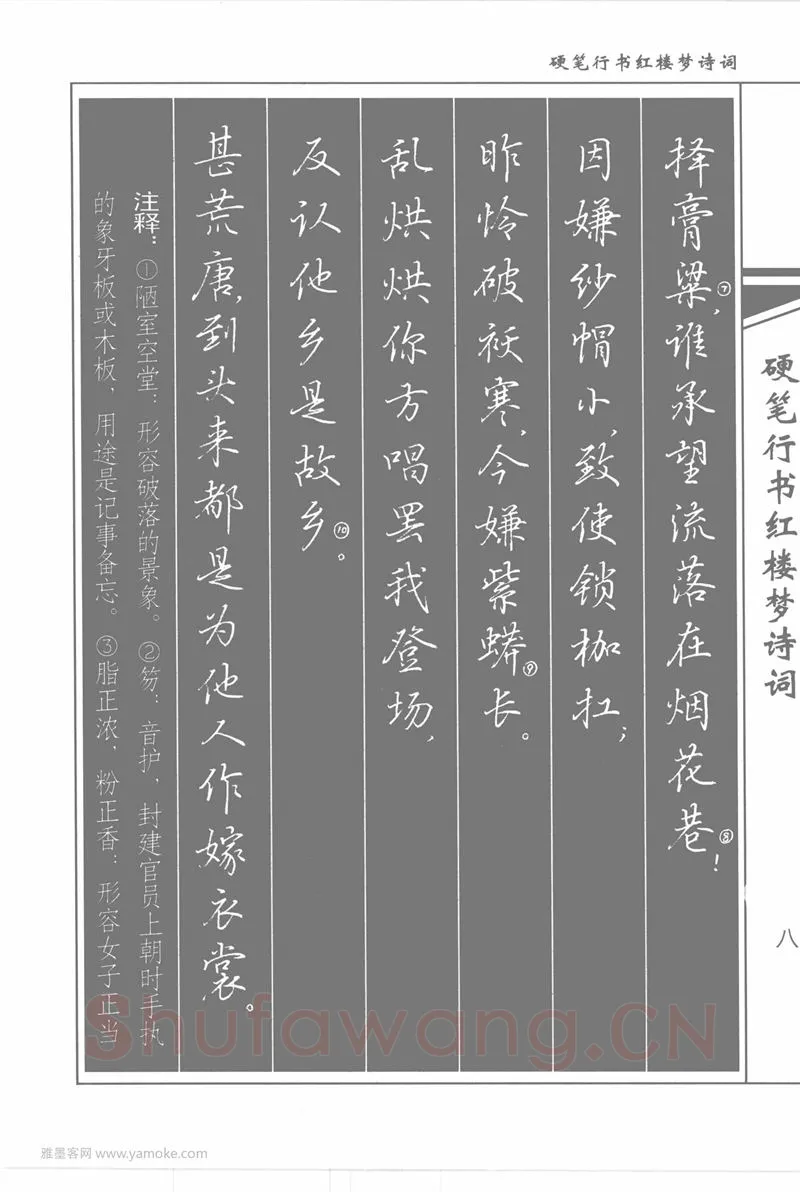 硬笔行书红楼梦诗词
硬笔行书红楼梦诗词
八
择膏粱⑦,谁承望流落在烟花巷⑧!
因嫌纱帽小,致使锁枷扛;
昨怜破袄寒,今嫌紫蟒⑨长。
乱烘烘你方唱罢我登场,
反认他乡是故乡⑩。
甚荒唐,到头来都是为他人作嫁衣裳。
注释:①陋室空堂:形容破落的景象。②笏:音护,封建官员上朝时手执
的象牙板或木板,用途是记事备忘。③脂正浓、粉正香:形容女子正当
Shufawang.CN
雅墨客网 www.yamoke.com